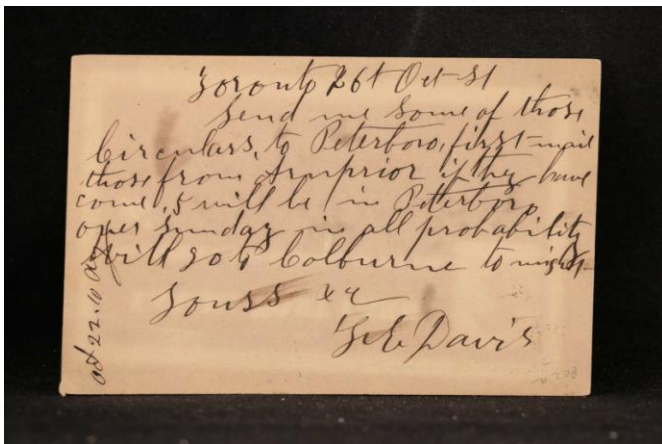 Toronto 26t Oct
Send me some of those
Circulars, to Peterboro, first mail
those from Arnprior if they have
come, I will be in Peterboro
over Sunday in all probability
Will go to Colburne to night
Yours &c
Davis